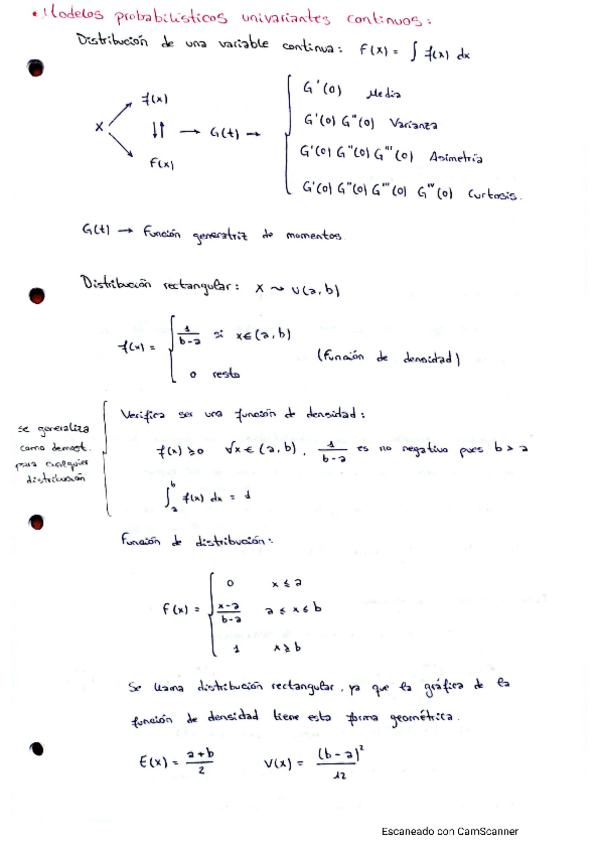 • Modelos probabilísticos univariantes continuos:
Distribución de una variable continua: F(x) = ∫ f(x) dx
f(x)
G'(0) Media
X ↓↑ → G(t) → G'(0) G''(0) Varianza
F(x)
G'(0) G''(0) G'''(0) Asimetría
G'(0) G''(0) G'''(0) G''''(0) Curtosis.
G(t) → Función generatriz de momentos.
Distribución rectangular: X ~ U(a, b)
f(x) = { 1/(b-a) si x ∈ (a, b)
0 resto
(Función de densidad)
se generaliza
como demost.
para cualquier
distribución
Verifica ser una función de densidad:
f(x) ≥ 0 ∀x ∈ (a, b), 1/(b-a) es no negativo pues b > a
∫ₐᵇ f(x) dx = 1
Función de distribución:
F(x) = { 0 x ≤ a
(x-a)/(b-a) a ≤ x ≤ b
1 x ≥ b
Se llama distribución rectangular, ya que la gráfica de la
función de densidad tiene esta forma geométrica.
E(x) = (a+b)/2 V(x) = (b-a)²/12
Escaneado con CamScanner